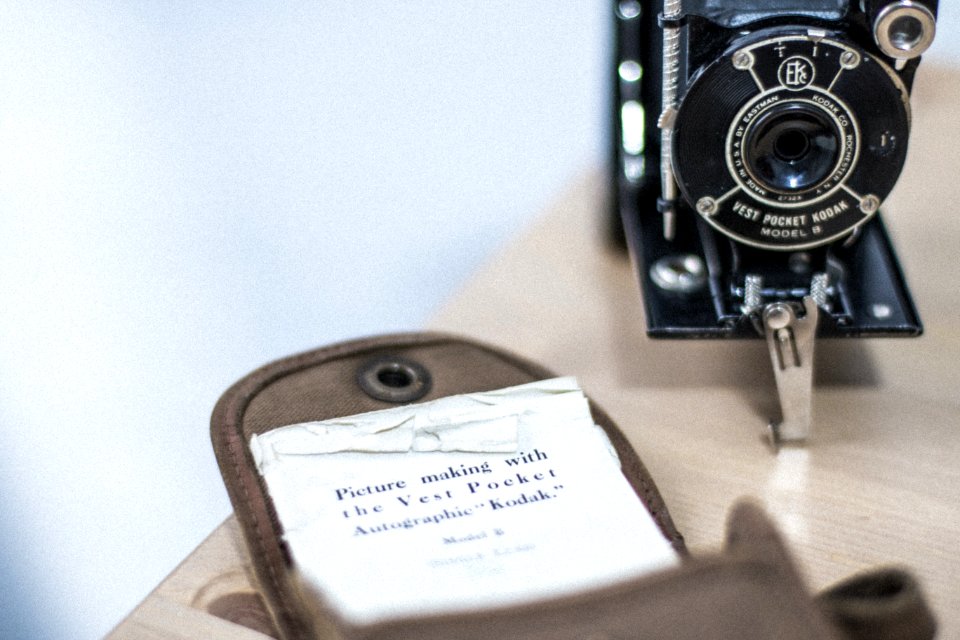 EKC
MADE IN U.S.A. BY EASTMAN KODAK CO. ROCHESTER N.Y.
VEST POCKET KODAK
MODEL B
Picture making with
the Vest Pocket
Autographic "Kodak."
Model B